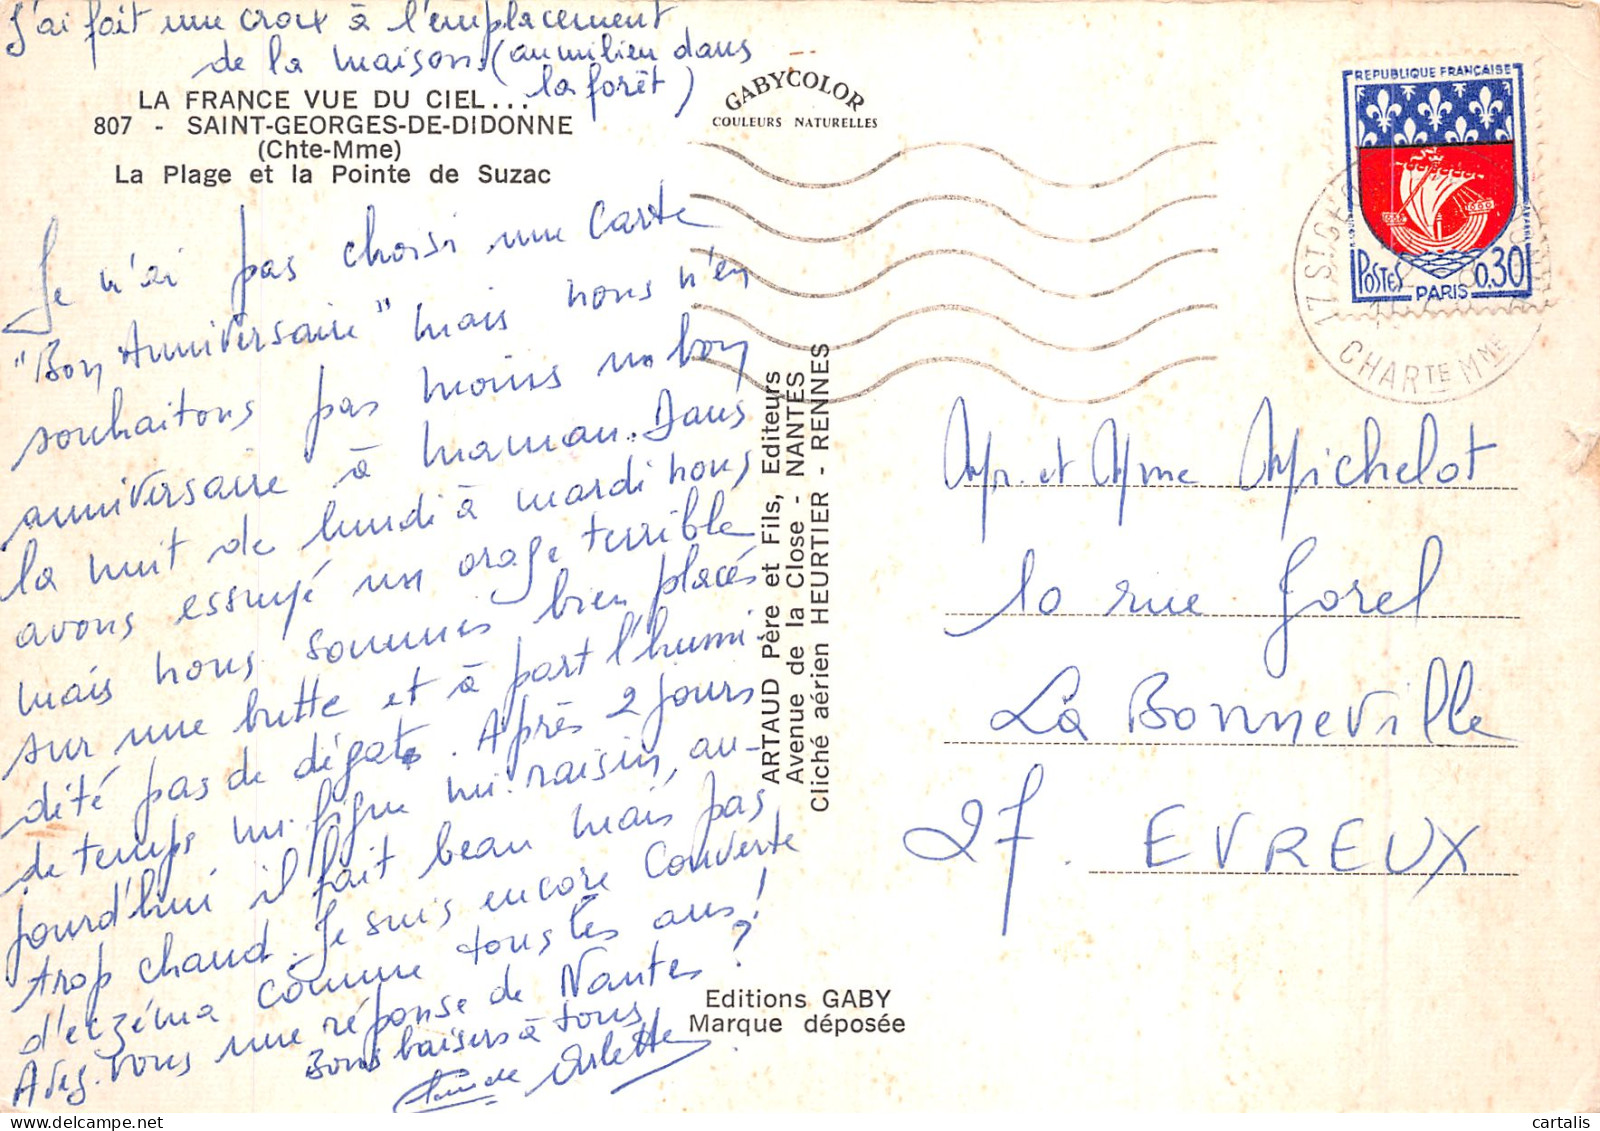 J'ai fait une croix à l'emplacement
de la maison. (au milieu dans
la forêt)
LA FRANCE VUE DU CIEL...
807 - SAINT-GEORGES-DE-DIDONNE
(Chte-Mme)
La Plage et la Pointe de Suzac
GABYCOLOR
COULEURS NATURELLES
Je n'ai pas choisi une carte
"Bon Anniversaire" mais nous n'en
souhaitons pas moins un bon
anniversaire à maman. Dans
la nuit de lundi à mardi nous
avons essuyé un orage terrible
mais nous sommes bien placés
sur une butte et à part l'humi-
dité pas de dégats. Après 2 jours
de temps mi. figue mi. raisin, au-
jourd'hui il fait beau mais pas
trop chaud. Je suis encore couverte
d'eczéma comme tous les ans!
Avez-vous une réponse de Nantes?
Bons baisers à tous
Claude Arlette
ARTAUD Père et Fils, Editeurs
Avenue de la Close - NANTES
Cliché aérien HEURTIER - RENNES
Editions GABY
Marque déposée
REPUBLIQUE FRANÇAISE
POSTES 0,30
PARIS
17 ST GEO
CHARTE MME
Mr. et Mme Michelot
10 rue Jorel
La Bonneville
27. EVREUX
cartalis